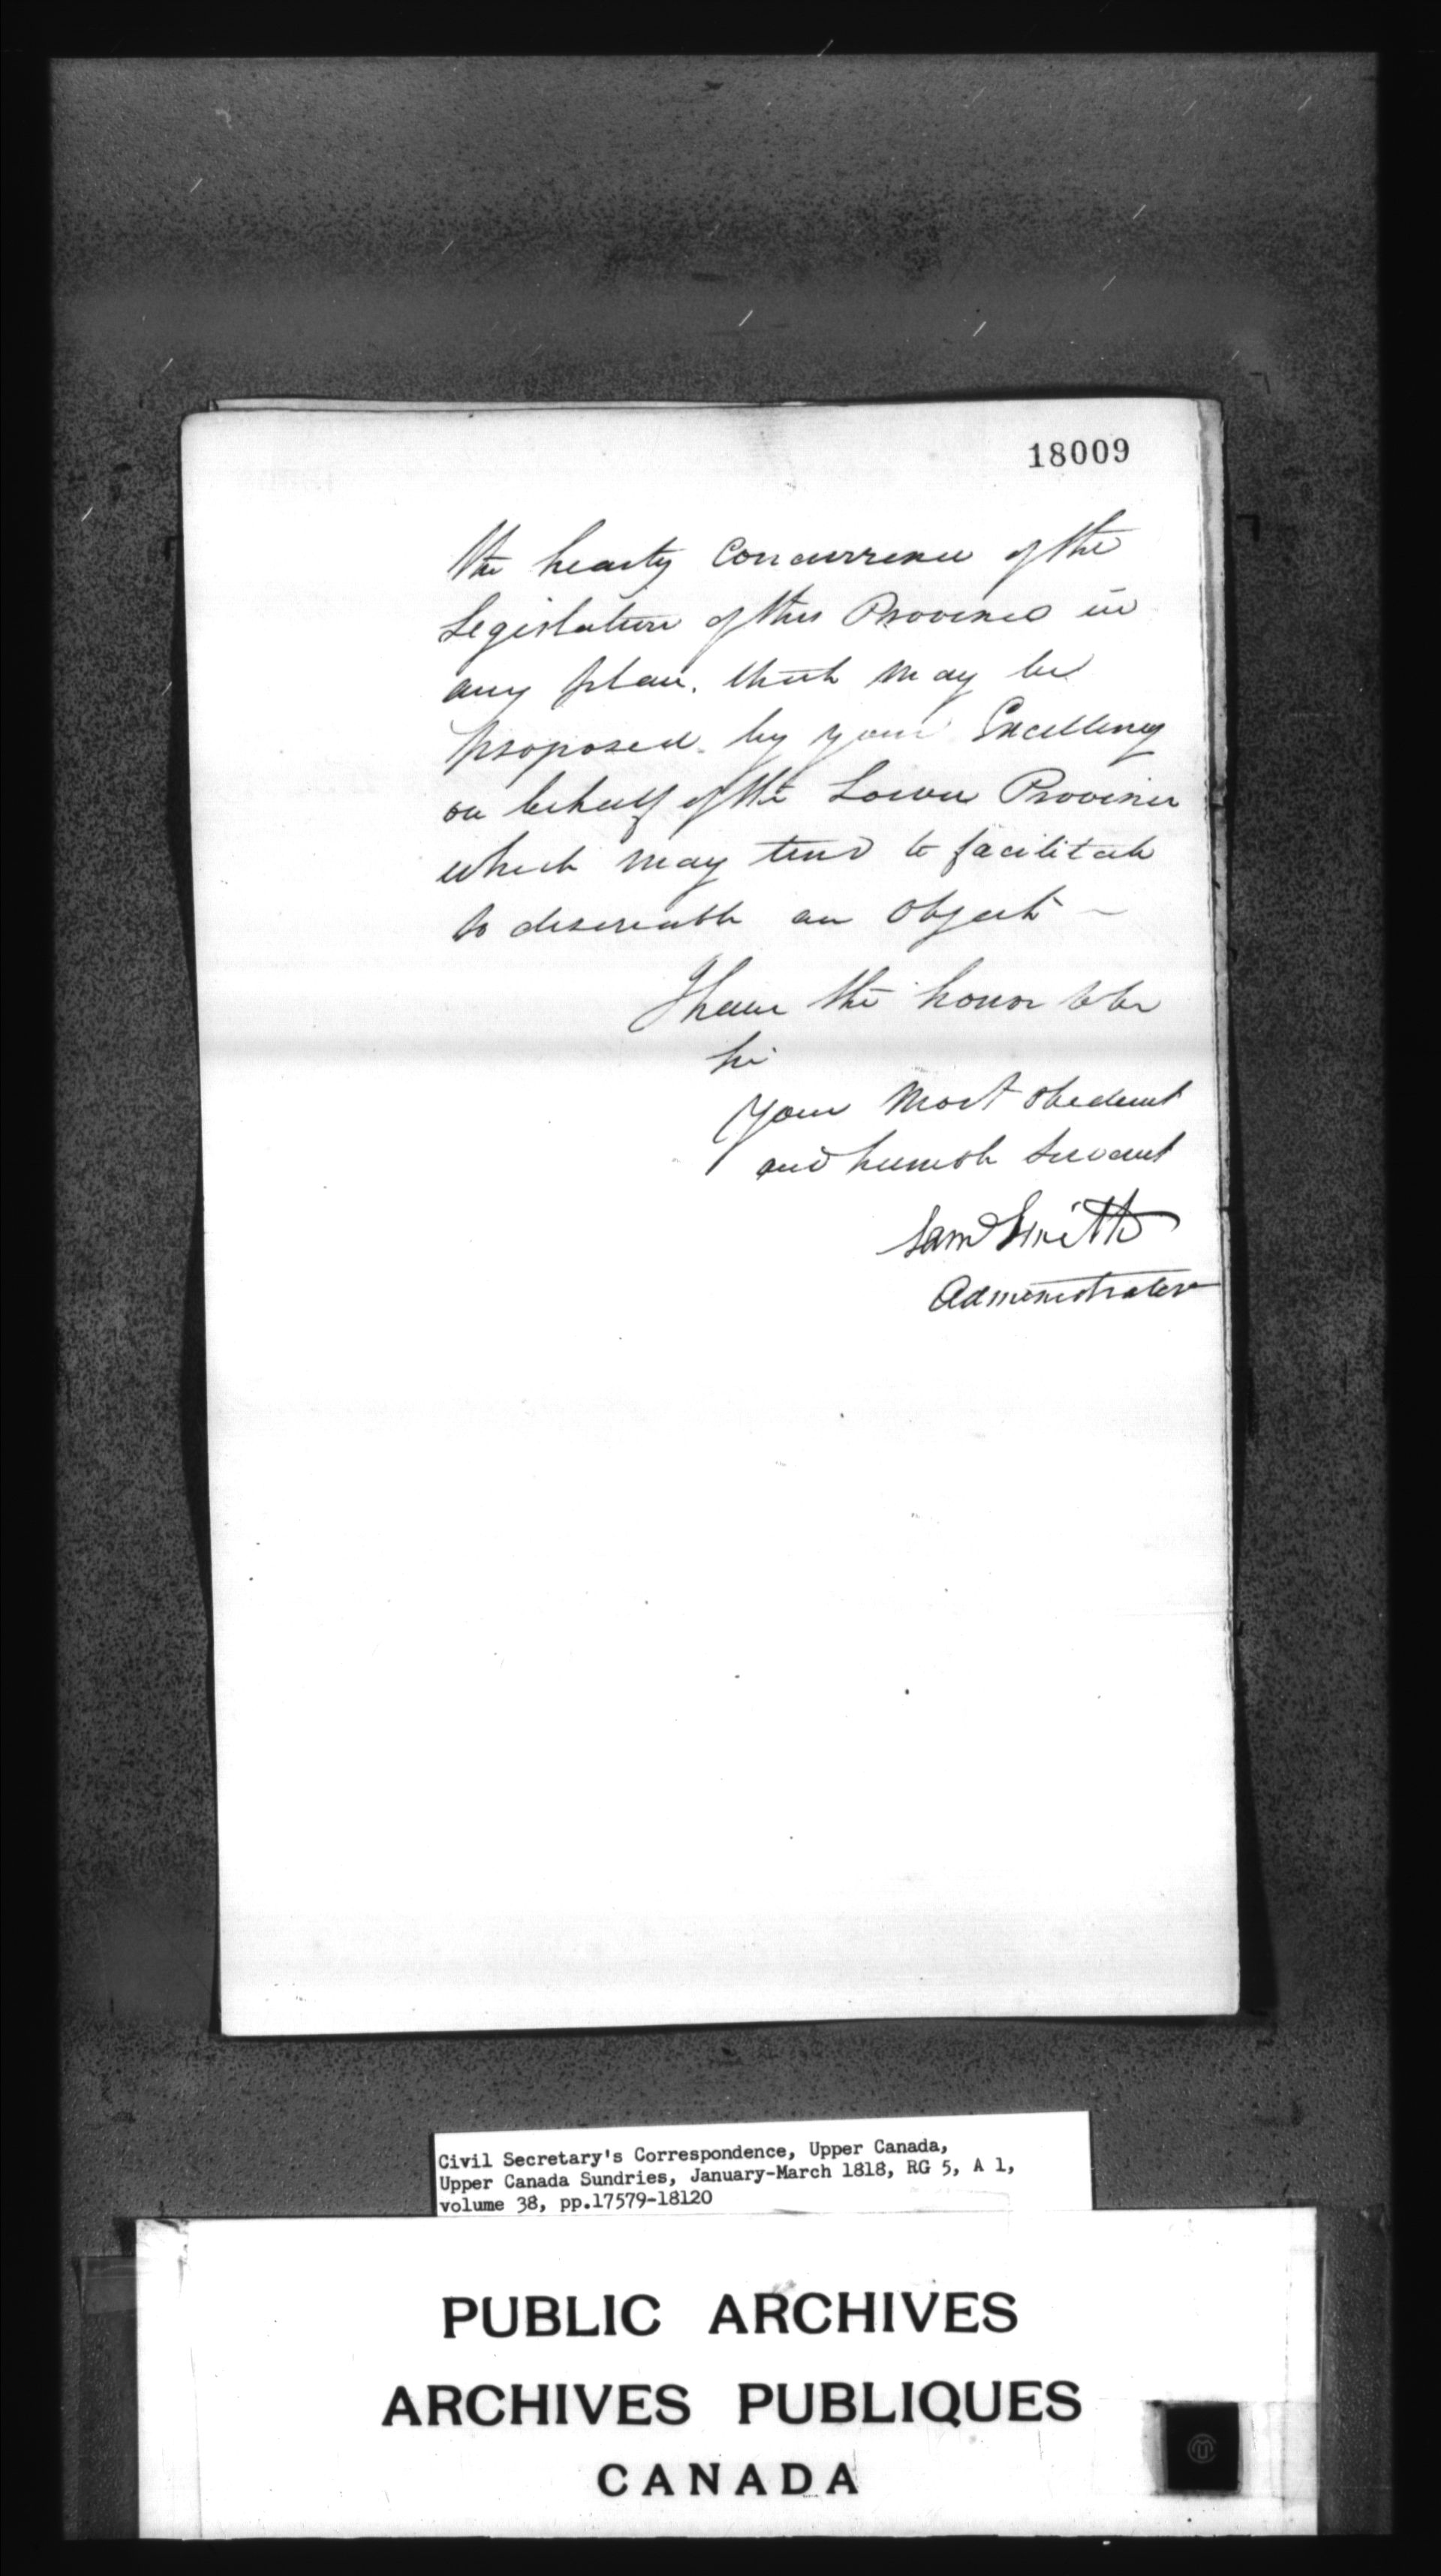 18009
the hearty Concurrence of the
Legislature of this Province in
any plan. that may be
proposed by your Excellency
on behalf of the Lower Province
which may tend to facilitate
so desireable an object —
I have the honor to be
Sir
Your Most obedient
and humble Servant
Sam Smith
Administrator
Civil Secretary's Correspondence, Upper Canada,
Upper Canada Sundries, January-March 1818, RG 5, A 1,
volume 38, pp.17579-18120
PUBLIC ARCHIVES
ARCHIVES PUBLIQUES
CANADA